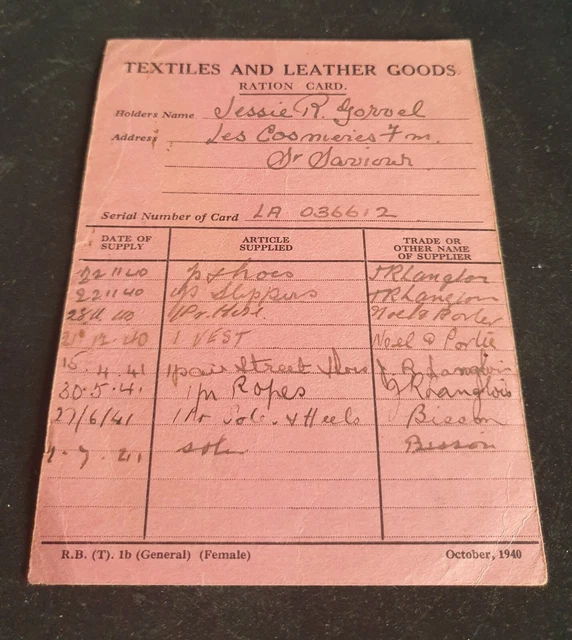 TEXTILES AND LEATHER GOODS
RATION CARD.
Holders Name Jessie R. Gorvel
Address Les Cosmieres Fm.
St Saviour
Serial Number of Card LA 036612
DATE OF SUPPLY ARTICLE SUPPLIED TRADE OR OTHER NAME OF SUPPLIER
22 11 40 1 p shoes J R Langlois
22 11 40 1 p Slippers J R Langlois
28 11 40 1 Pr Hose Noel & Porter
12 40 1 VEST Noel & Porter
15. 4. 41 1 pair Street Shoes J. R. Langlois
30.5.41. 1 pr Ropes J R Langlois
27/6/41 1 Pr Sole. & Heels Bisson
7. 41 Bisson
R.B. (T). 1b (General) (Female) October, 1940